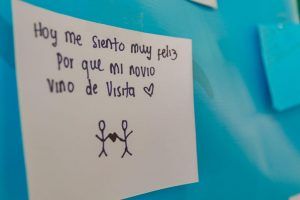 Hoy me siento muy feliz
Por que mi novio
vino de visita ♡